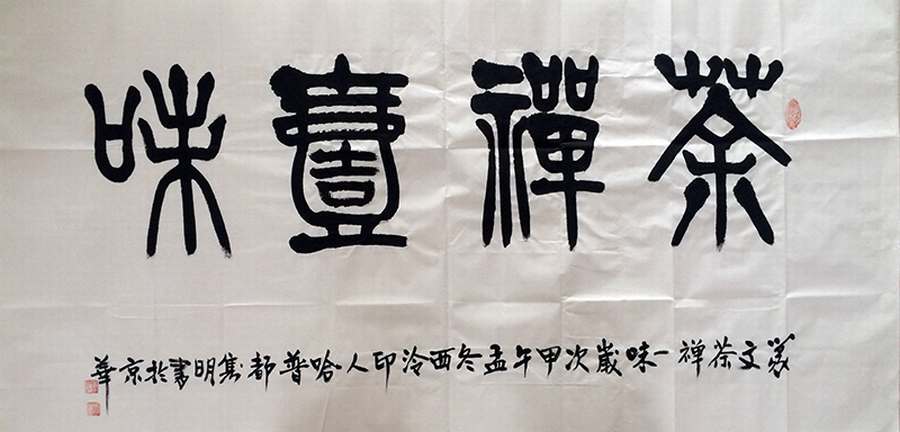 茶禪壹味
篆文茶禅一味歲次甲午孟冬西泠印人哈普都隽明書於京華